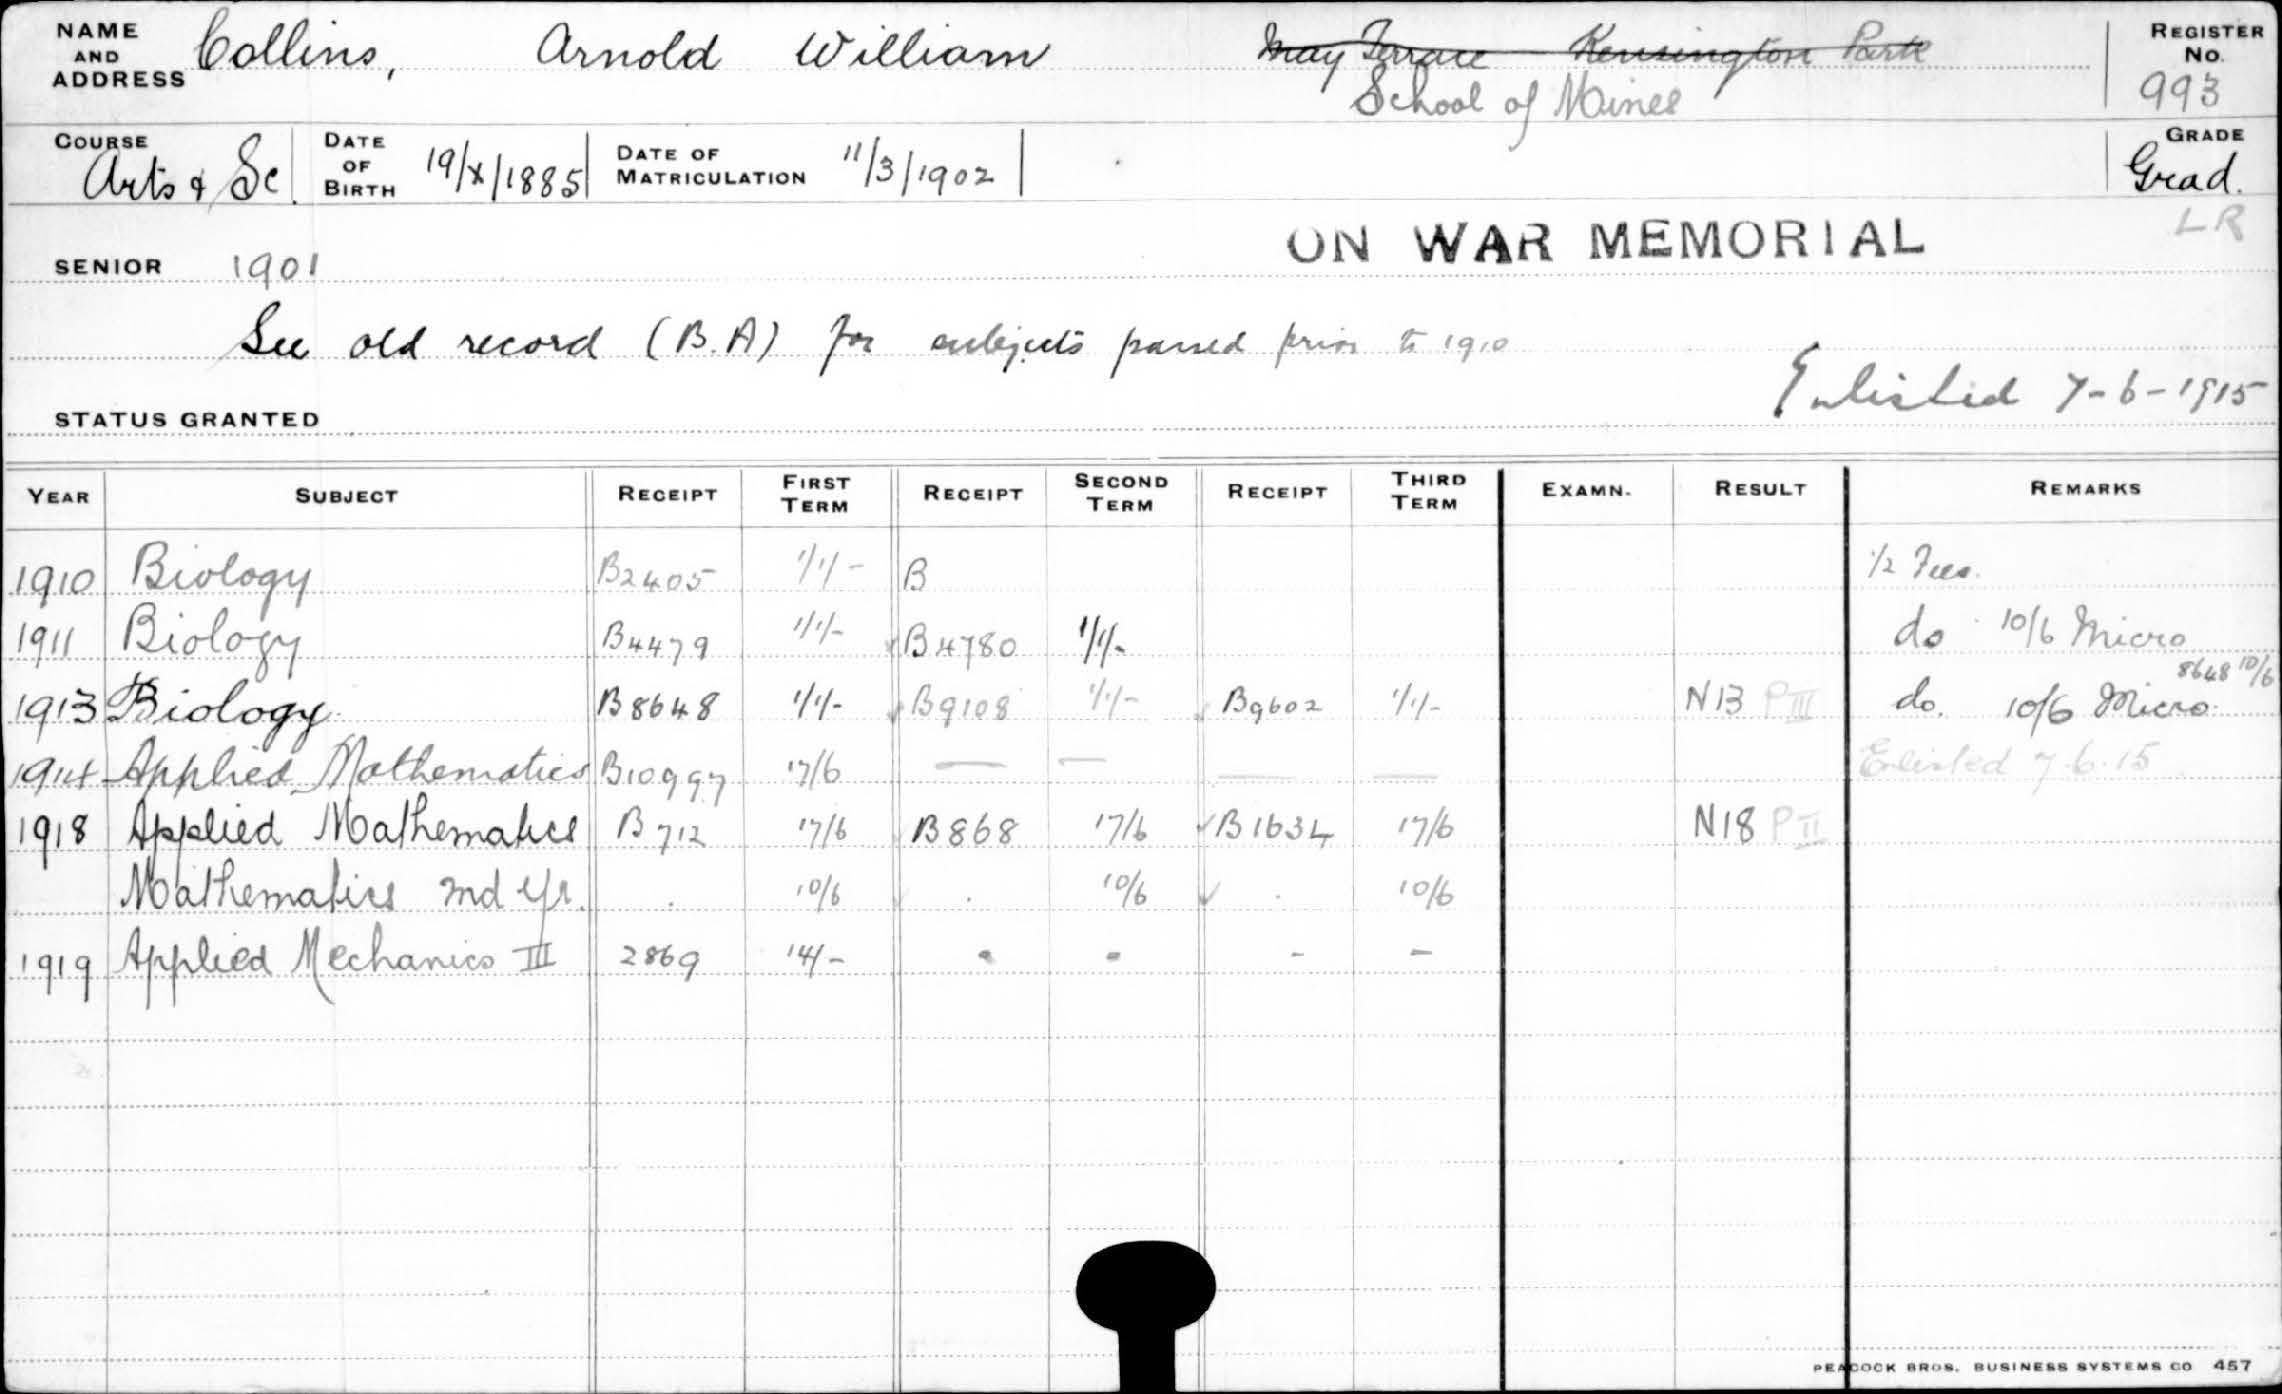 NAME AND ADDRESS Collins, Arnold William May Terrace Kensington Park REGISTER No.
School of Mines 993
COURSE Arts & Sc. DATE OF BIRTH 19/X/1885 DATE OF MATRICULATION 11/3/1902 GRADE Grad.
ON WAR MEMORIAL LR
SENIOR 1901
See old record (B.A) for subjects passed prior to 1910
Enlisted 7-6-1915
STATUS GRANTED
YEAR SUBJECT RECEIPT FIRST TERM RECEIPT SECOND TERM RECEIPT THIRD TERM EXAMN. RESULT REMARKS
1910 Biology B2405 1/1/- B 1/2 Fees.
1911 Biology B4479 1/1/- B4780 1/1/- do 10/6 Micro
8648 10/6
1913 Biology B8648 1/1/- B9108 1/1/- B9602 1/1/- N13 P III do. 10/6 Micro
1914 Applied Mathematics B10997 17/6 — — — — Enlisted 7.6.15
1918 Applied Mathematics B712 17/6 B868 17/6 B1634 17/6 N18 P II
Mathematics IInd Yr. . 10/6 . 10/6 . 10/6
1919 Applied Mechanics III 2869 14/- - - - -
PEACOCK BROS. BUSINESS SYSTEMS CO 457